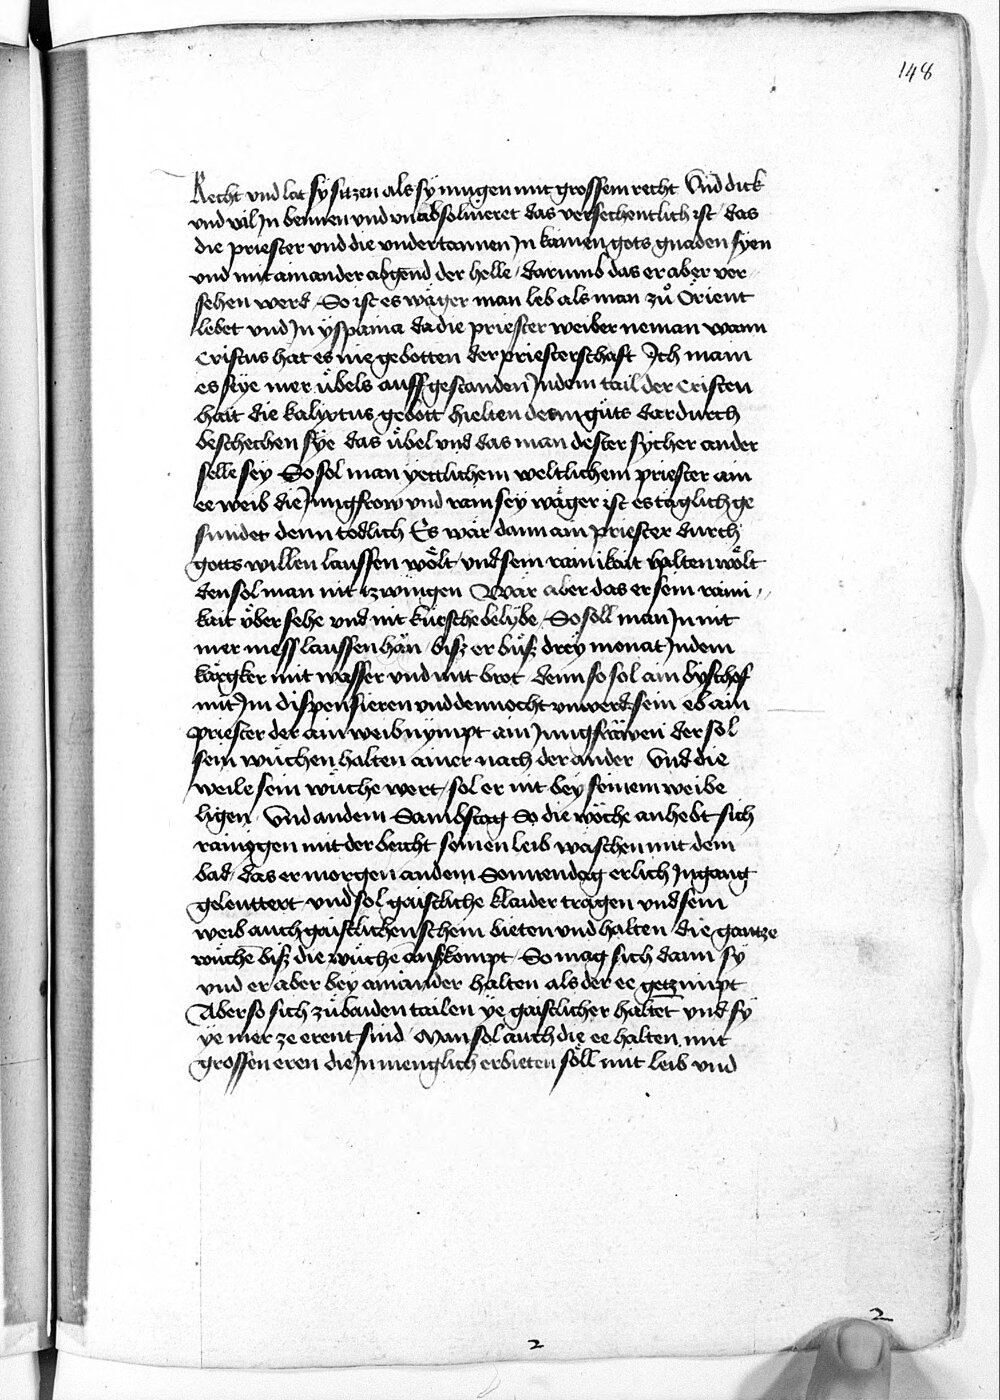 148
Recht vnd lat sy sitzen als sy mugen mit grossem recht Vnd dick
vnd vil jn bennen vnd vnabsoluieret das versechentlich ist das
die priester vnd die vndertannen jn kainen gots gnaden syen
vnd mit ainander abgend der helle darumb das er aber ver
sehen werd So ist es wäger man leb als man zů Orient
lebet vnd jn yspania da die priester weiber neman wann
Cristus hat es nie gebotten der priesterschaft Ich main
es sye mer übels auff gestanden jn dem tail der Cristen
hait die kalixtus gebott hielten denn gůts dardurch
beschechen sye das übel vnd das man dester sycher an der
selle sey So sol man yettlichem weltlichem priester ain
ee weib die jungfrow vnd rain sey wäger ist es täglich ge
sundet denn todlich Es wär dann ain priester durch
gotts willen laussen wölt vnd sein rainikait halten wölt
den sol man nit tzwingen Wär aber das er sein raini
kait über sehe vnd nit küesche belybe So soll man jn nit
mer mess laussen hän bisz er büsz drey monat jn dem
kärgker mit wasser vnd mit brot denn so sol ain byschof
mit jm dispensieren vnd dennocht vnwerd sein eb ain
priester der ain weib nympt ain jungfräwen der sol
sein wüchen halten ainer nach der ander Vnd die
weile sein wüche wert sol er nit bey seinem weibe
ligen Vnd an dem Sambstag So die wöche anhebt sich
rainygen mit der beicht seinen leib wäschen mit dem
bad das er morgen an dem Sonnendag erlich jn gang
geleuttert vnd sol gaistliche klaider tragen vnd sein
weib auch gaistlichen schein bieten vnd halten die gantze
wüchen bisz die wüchen auszkompt So mag sich dann sy
vnd er aber bey ainander halten als der ee getzimpt
Aber so sich zů baiden tailen ye gaistlicher haltet vnd sy
ye mer ze erent sind Man sol auch die ee halten mit
grossen eren die jn menglich erbieten söll mit leib vnd
2
2